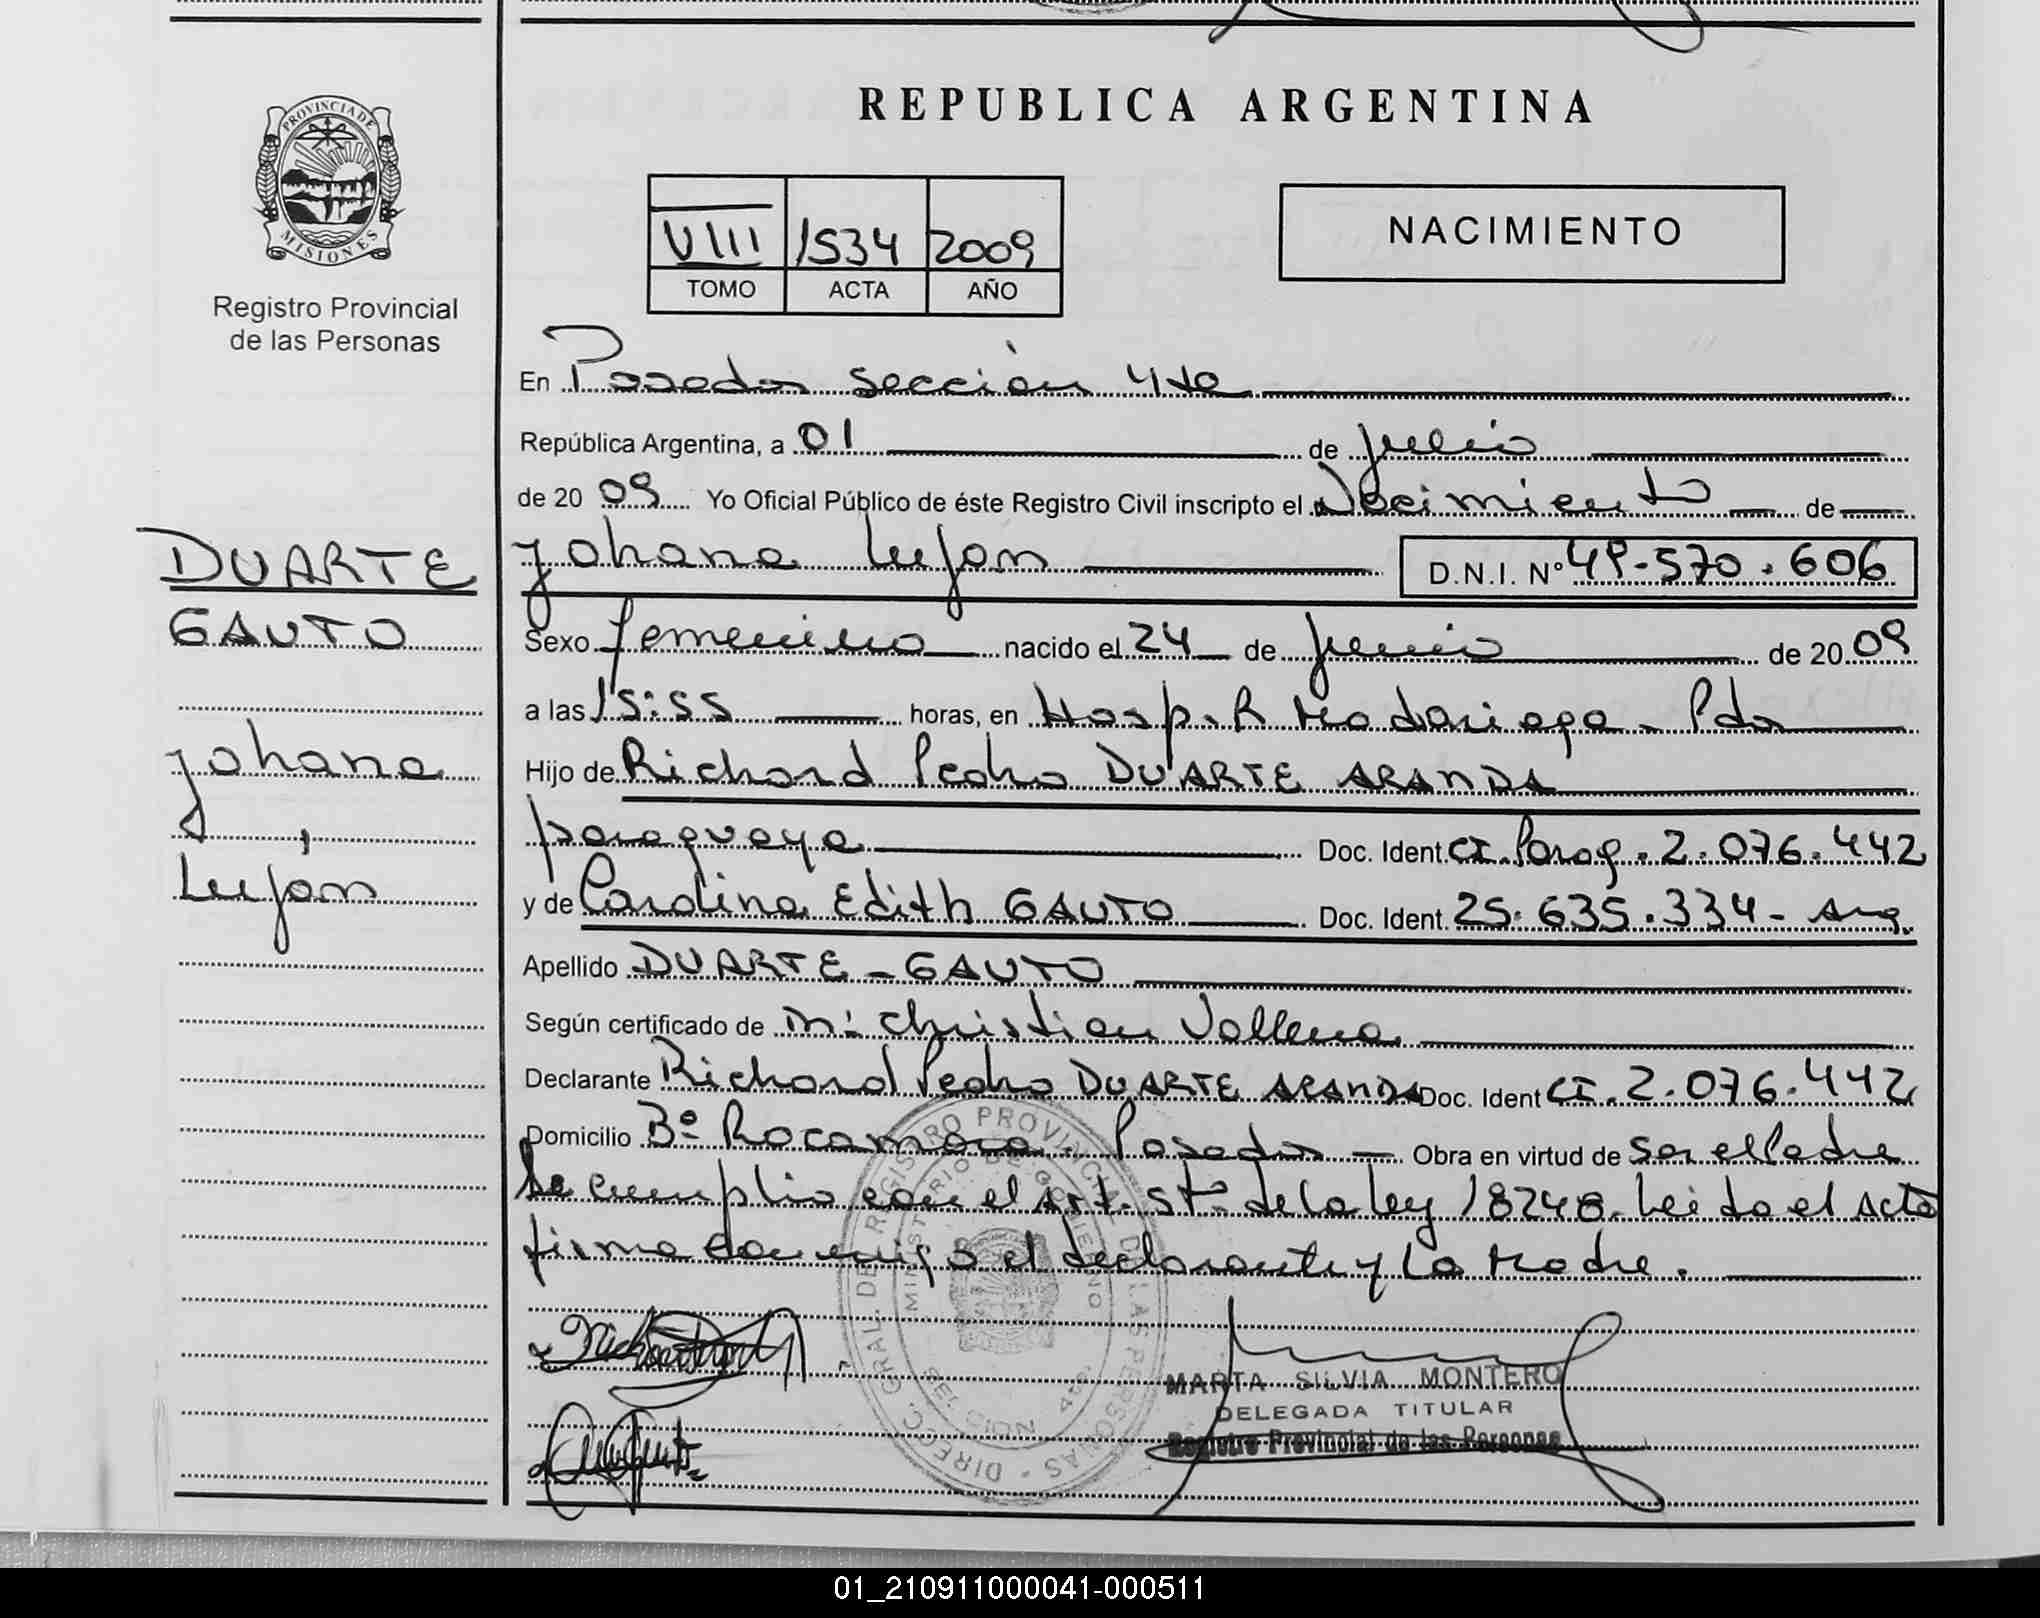 PROVINCIA DE
MISIONES
Registro Provincial
de las Personas
DUARTE
GAUTO
Johana
,
Luján
REPUBLICA ARGENTINA
VIII 1534 2009
TOMO ACTA AÑO
NACIMIENTO
En Posadas sección 4ta
República Argentina, a 01 de julio
de 2009 Yo Oficial Público de éste Registro Civil inscripto el Nacimiento de
Johana Luján D.N.I. Nº 49.570.606
Sexo femenino nacido el 24 de junio de 2009
a las 15:55 horas, en Hosp. R Madariaga - Pdas
Hijo de Richard Pedro DUARTE ARANDA
paraguaya Doc. Ident. CI. Parag. 2.076.442
y de Carolina Edith GAUTO Doc. Ident. 25.635.334 - Arg.
Apellido DUARTE - GAUTO
Según certificado de Christian
Declarante Richard Pedro DUARTE ARANDA Doc. Ident CI. 2.076.442
Domicilio Bº Rocamora - Posadas Obra en virtud de ser el Padre
Se cumplio con el Art. 5to de la ley 18248. Leido el acta
firma conmigo el declarante y la Madre.
DIRECC. GRAL. DE REGISTRO PROVINCIAL DE LAS PERSONAS
MINISTERIO DE GOBIERNO
SECCION 4ta.
MARTA SILVIA MONTERO
DELEGADA TITULAR
Registro Provincial de las Personas
01_210911000041-000511